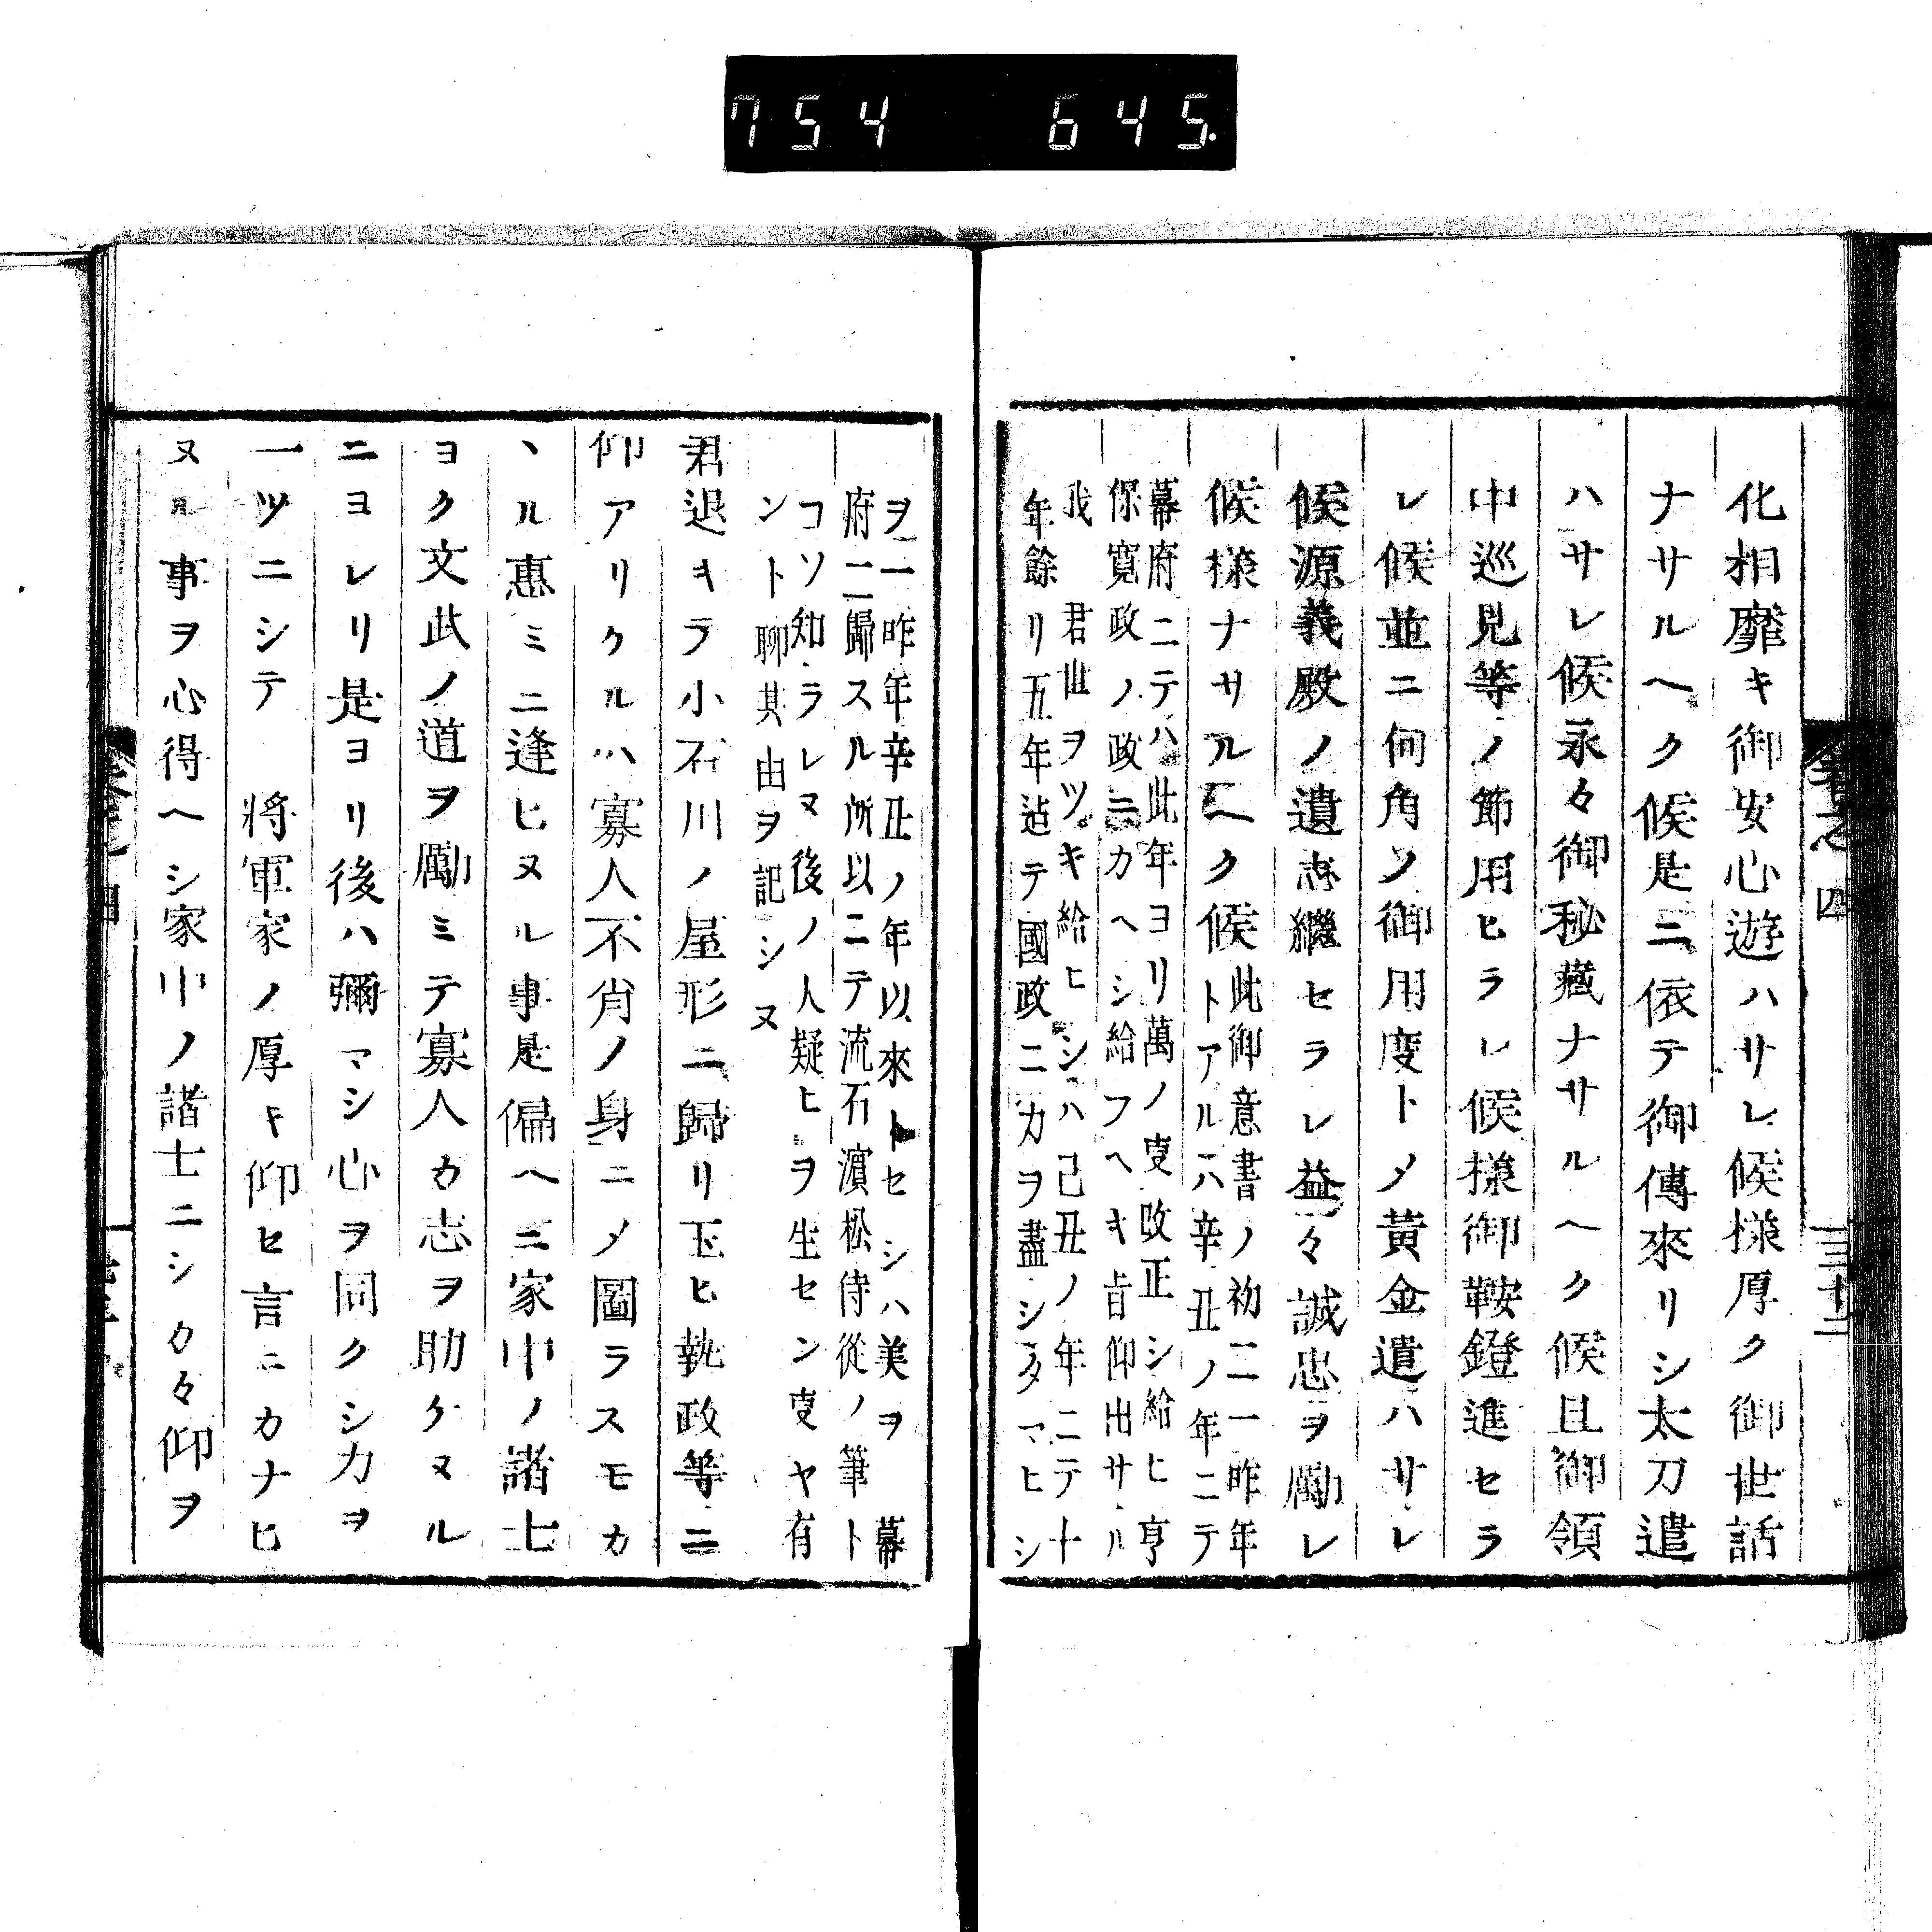 754 645.
化相靡キ御安心遊ハサレ候様厚ク御世話
ナサルヘク候是ニ依テ御傳來リシ太刀遣
ハサレ候永々御秘藏ナサルヘク候且御領
中巡見等ノ節用ヒラレ候様御鞍鐙進セラ
レ候並ニ何角ノ御用度トメ黄金遣ハサレ
候源義殿ノ遺志繼セラレ益々誠忠ヲ勵レ
候様ナサルヘク候
此御意書ノ初ニ一昨年
トアルハ辛丑ノ年ニテ
幕府ニテハ此年ヨリ萬ノ叓改正シ給ヒ亨
保寛政ノ政ニカヘシ給フヘキ旨仰出サル
我 君世ヲツキ給ヒシハ己丑ノ年ニテ十
年餘リ五年迠テ國政ニカヲ盡シタマヒシ
ヲ一昨年辛丑ノ年以來トセシハ美ヲ 幕
府ニ歸スル所以ニテ流石濵松侍從ノ筆ト
コソ知ラレヌ後ノ人疑ヒヲ生セン叓ヤ有
ント聊其由ヲ記シヌ
君退キラ小石川ノ屋形ニ歸リ玉ヒ執政等ニ
仰アリクルハ寡人不肖ノ身ニメ圖ラスモカ
ヽル惠ミニ逢ヒヌル事是偏ヘニ家中ノ諸士
ヨク文武ノ道ヲ勵ミテ寡人カ志ヲ助ケヌル
ニヨレリ是ヨリ後ハ彌マシ心ヲ同クシ力ヲ
一ツニシテ 將軍家ノ厚キ仰セ言ニカナヒ
ヌル事ヲ心得ヘシ家中ノ諸士ニシカ々仰ヲ